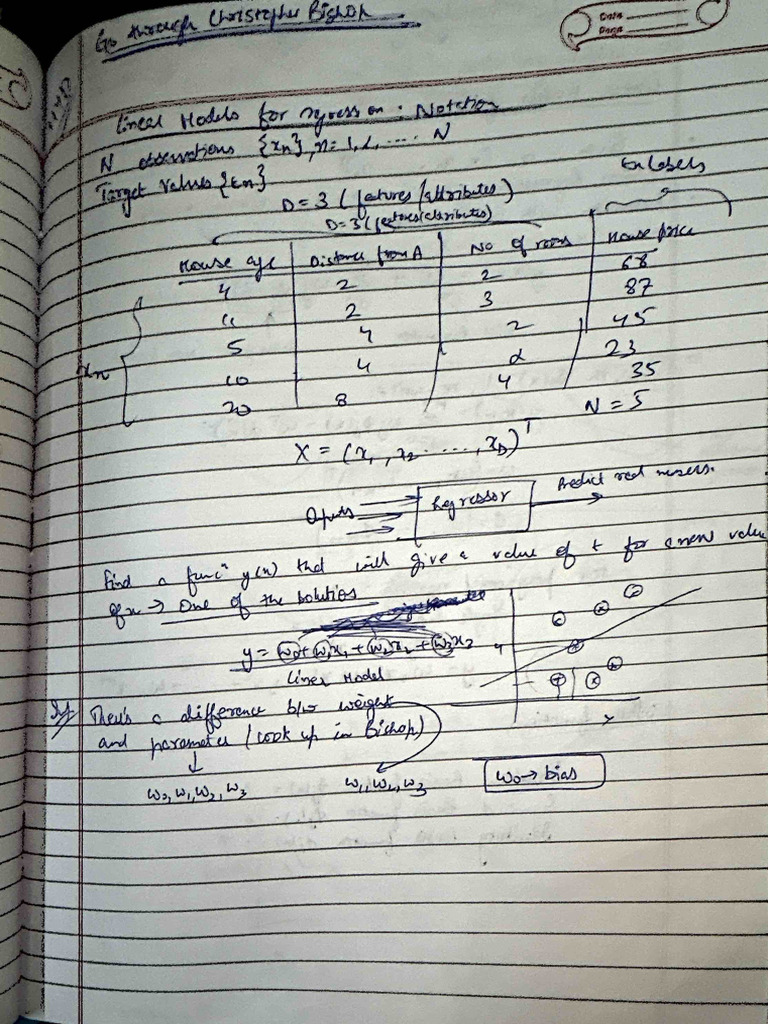 Go through Christopher Bishop
DATE
PAGE
Linear Models for regression : Notation
N observations {xn}, n = 1, 2, .... N
Target values {tn}
D = 3 (features/attributes)
D = 3 (features/attributes)
tn labels
House age | Distance from A | No of rooms | House price
4 | 2 | 2 | 68
11 | 2 | 3 | 87
5 | 4 | 2 | 45
10 | 4 | 2 | 23
20 | 8 | 4 | 35
xn
N = 5
X = (x1, x2 ....., xD)^T
Inputs
Regressor
Predict real numbers.
Find a funcⁿ y(x) that will give a value of t for a new value
of x → One of the solutions
y = w0 + w1x1 + w2x2 + w3x3
Linear Model
x
There's a difference b/w weight
and parameters (look up in Bishop)
↓
w0, w1, w2, w3
w1, w2, w3
w0 → bias